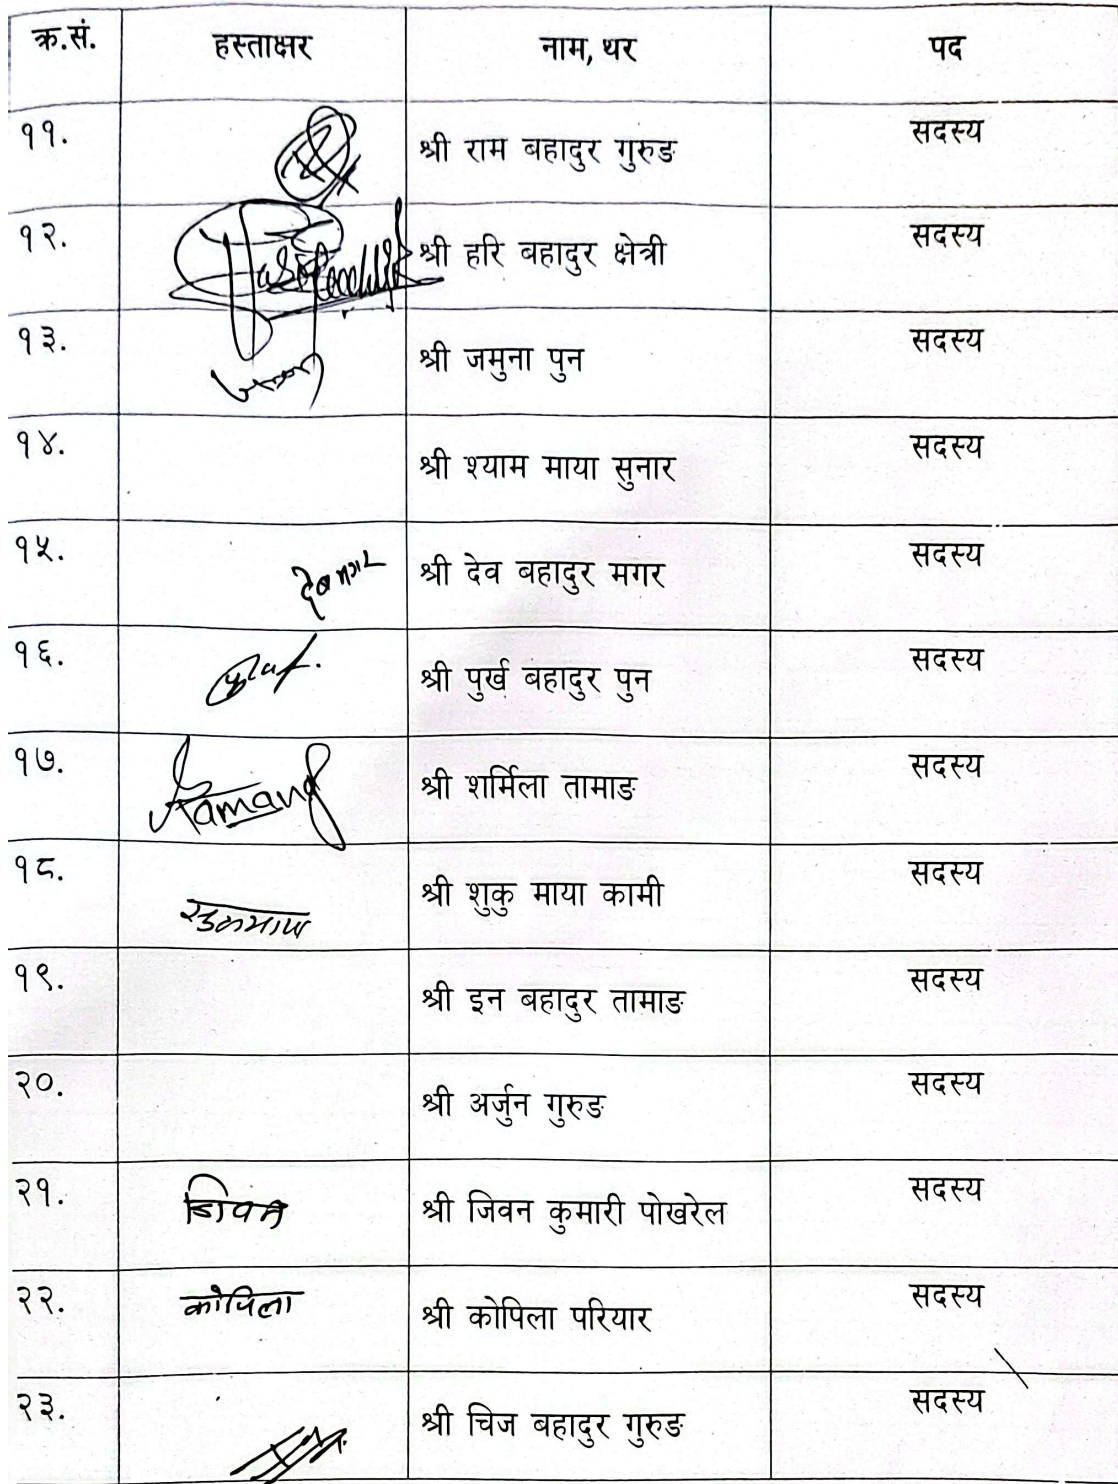 क्र.सं. हस्ताक्षर नाम, थर पद
११. श्री राम बहादुर गुरुङ सदस्य
१२. श्री हरि बहादुर क्षेत्री सदस्य
१३. श्री जमुना पुन सदस्य
१४. श्री श्याम माया सुनार सदस्य
१५. देव मगर श्री देव बहादुर मगर सदस्य
१६. श्री पुर्ख बहादुर पुन सदस्य
१७. Tamang श्री शर्मिला तामाङ सदस्य
१८. श्री शुकु माया कामी सदस्य
१९. श्री इन बहादुर तामाङ सदस्य
२०. श्री अर्जुन गुरुङ सदस्य
२१. जिवन श्री जिवन कुमारी पोखरेल सदस्य
२२. कोपिला श्री कोपिला परियार सदस्य
२३. श्री चिज बहादुर गुरुङ सदस्य